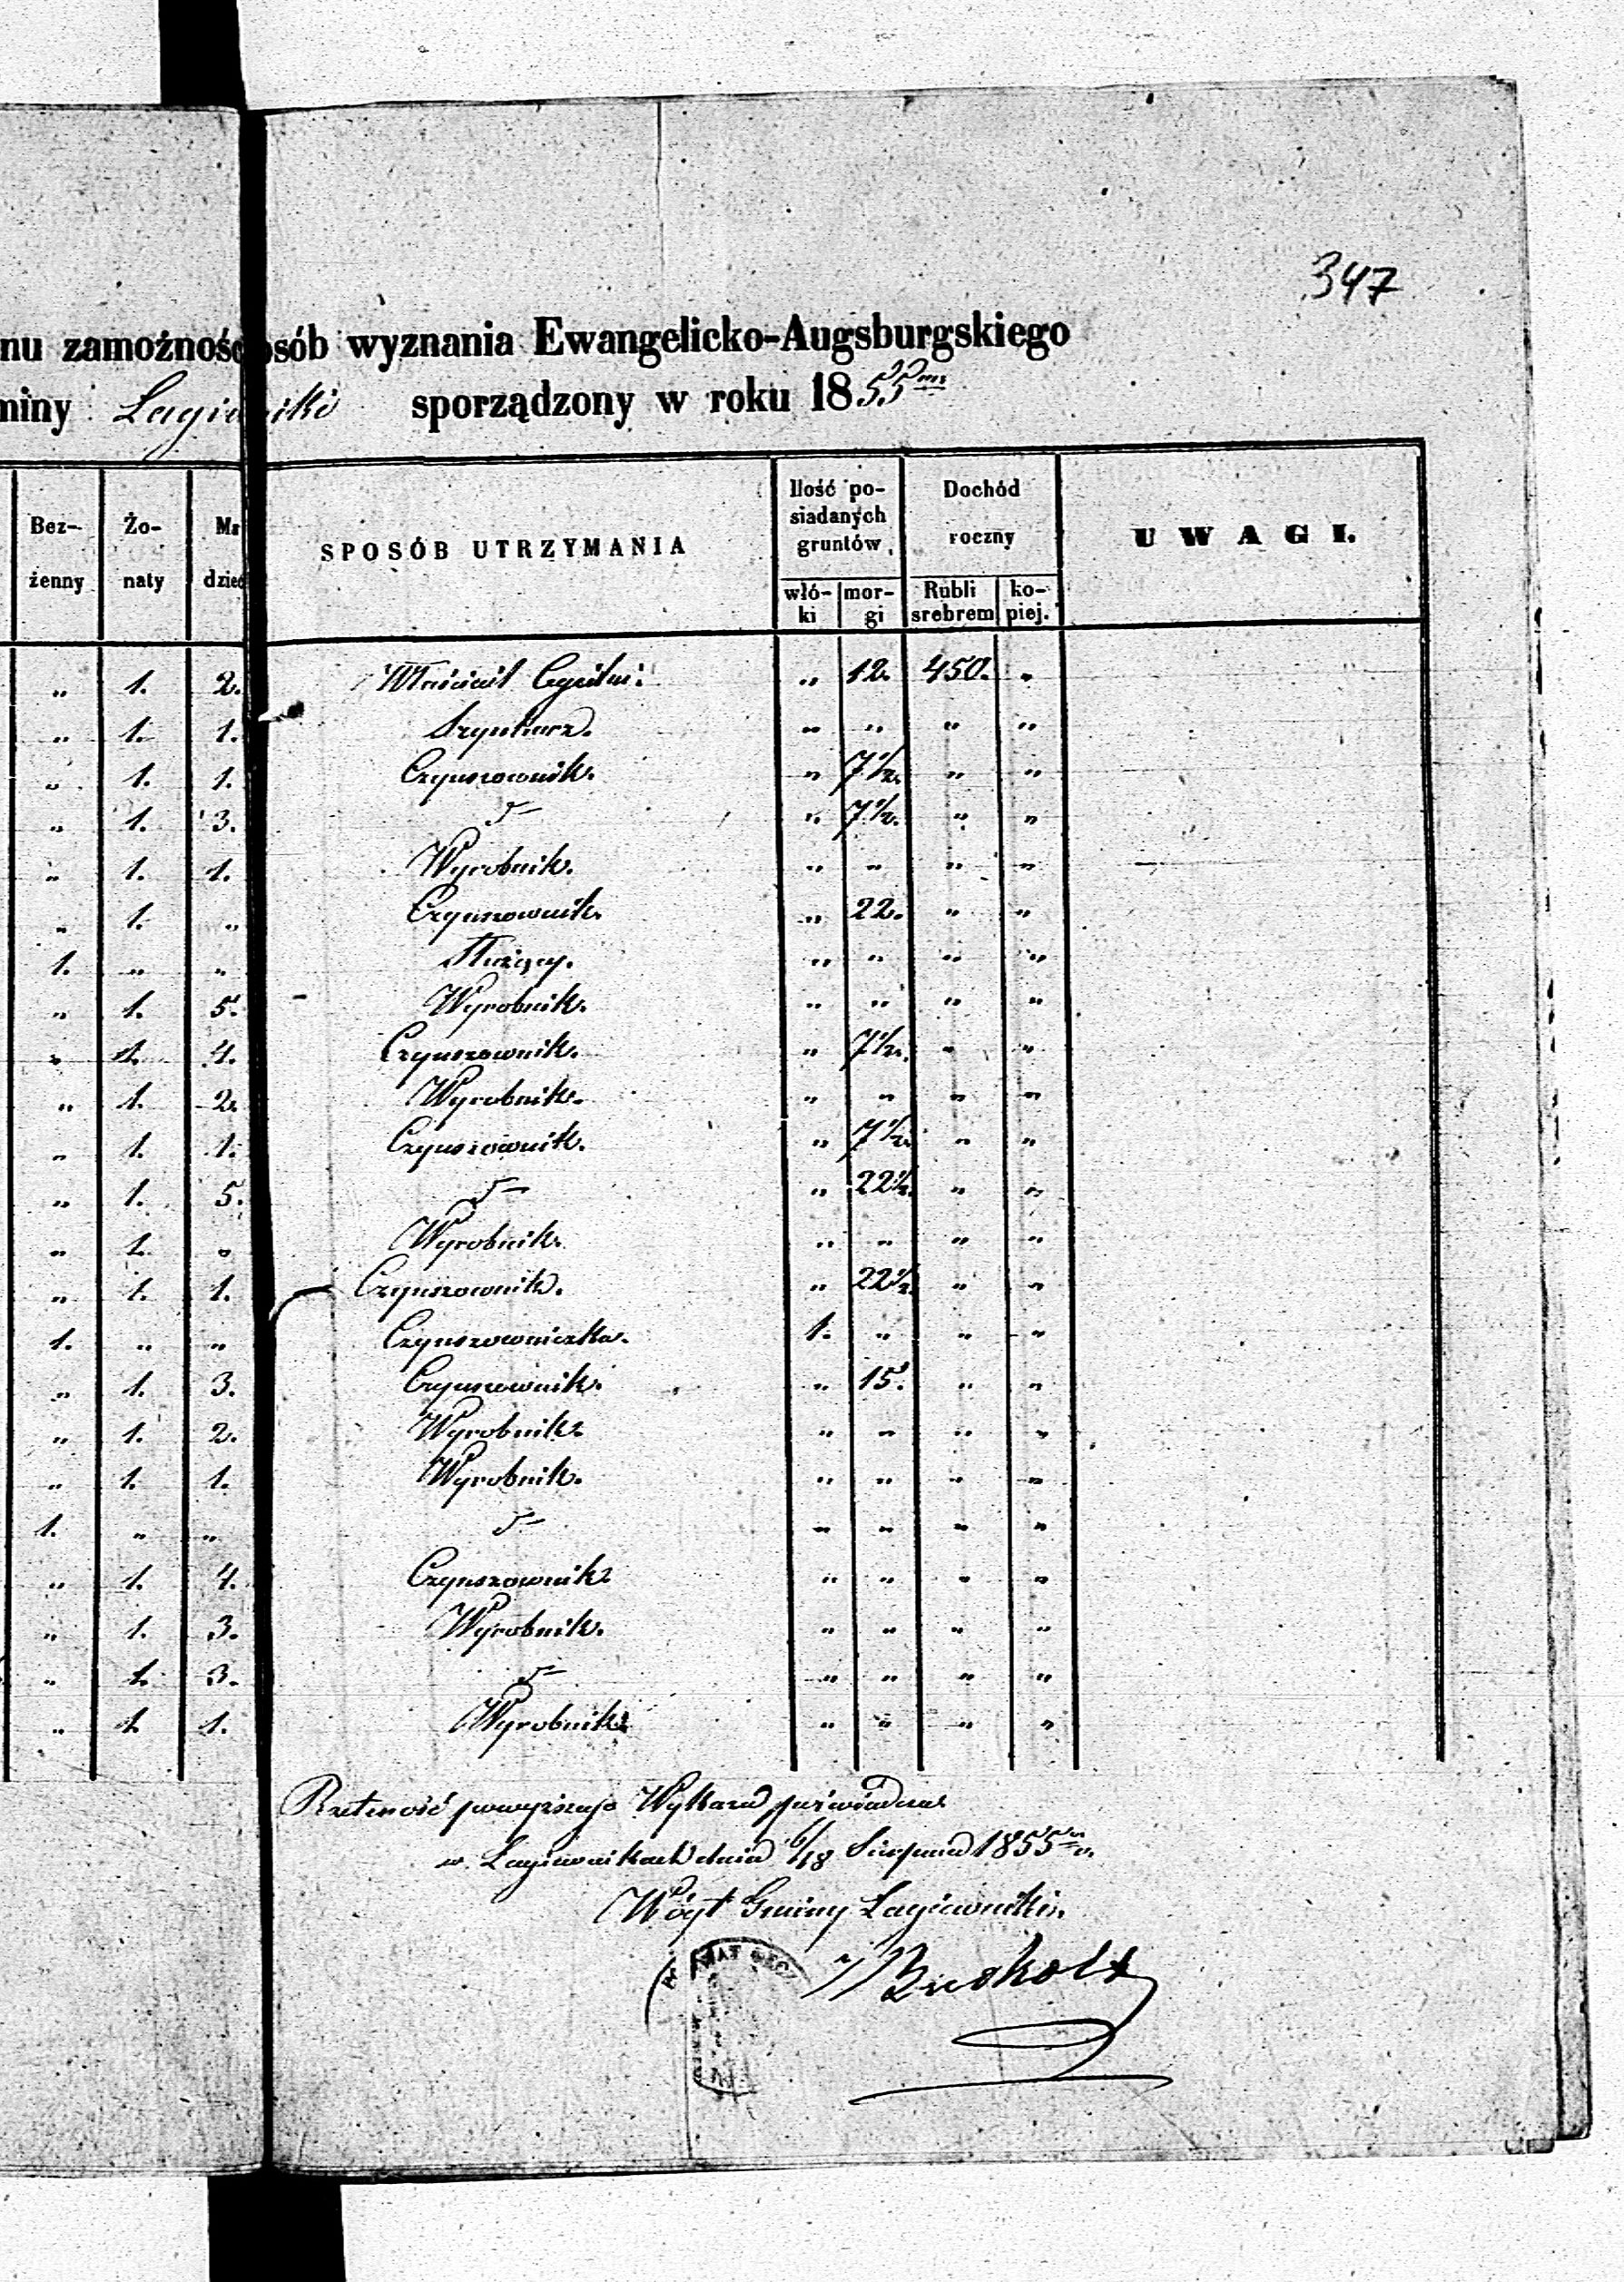 347
nu zamożnośc osób wyznania Ewangelicko-Augsburgskiego
miny Łagiewniki sporządzony w roku 1855
Bez-
żenny
Żo-
naty
Ma
dziec
SPOSÓB UTRZYMANIA
Ilość po-
siadanych
gruntów
włó-
ki
mor-
gi
Dochód
roczny
Rubli
srebrem
ko-
piej.
UWAGI.
„ 1. 2. Właściciel „ 12. 450. „
„ 1. 1. Szynkarz. „ „ „ „
„ 1. 1. Czynszownik. „ 7½. „ „
„ 1. 3. „ 7½. „ „
„ 1. 1. Wyrobnik. „ „ „ „
„ 1. „ Czynszownik. „ 22. „ „
1. „ „ Służący. „ „ „ „
„ 1. 5. Wyrobnik. „ „ „ „
„ 1. 4. Czynszownik. „ 7½. „ „
„ 1. 2. Wyrobnik. „ „ „ „
„ 1. 1. Czynszownik. „ 7½. „ „
„ 1. 5. „ 22½. „ „
„ 1. „ Wyrobnik. „ „ „ „
„ 1. 1. Czynszownik. „ 22½. „ „
1. „ „ Czynszowniczka. 1. „ „ „
„ 1. 3. Czynszownik. „ 15. „ „
„ 1. 2. Wyrobnik. „ „ „ „
„ 1. 1. Wyrobnik. „ „ „ „
1. „ „ „ „ „ „
„ 1. 4. Czynszownik „ „ „ „
„ 1. 3. Wyrobnik. „ „ „ „
„ 1. 3. „ „ „ „
„ 1. 1. Wyrobnik „ „ „ „
Rzetelność powyższego Wykazu poświadcza
w Łagiewnikach dnia 6/18 Sierpnia 1855
Wójt Gminy Łagiewniki.